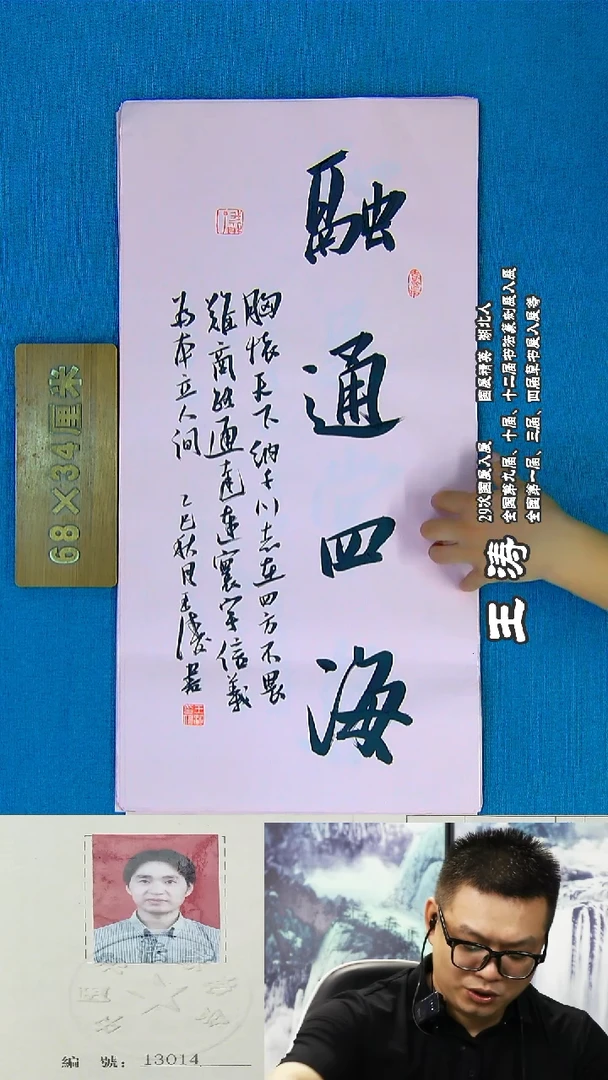 融通四海
胸怀天下纳千川志在四方不畏
难商路通达连寰宇信義
为本立人间 乙巳秋月王涛书
68×34厘米
王涛
29次国展入展 国展精英 湖北人
全国第九届、十届、十二届书法篆刻展入展
全国第一届、三届、四届草书展入展等
编 號：13014